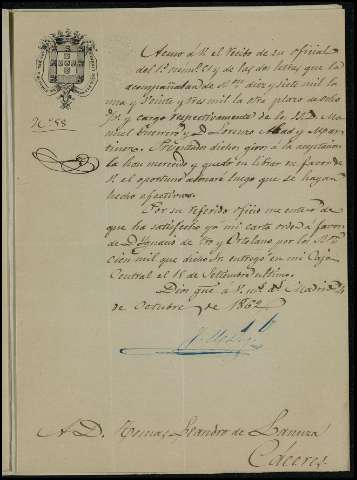 Nº 58
Acuso á V. el recibo de su oficial
del 1º núm. 51 y de las dos letras que lo
acompañaban de Rvn. diez y siete mil la
una y veinte y tres mil la otra plazo de ocho
d/v y cargo respectivamente de los Sres. D. Ma
nuel Guerrero y D. Lorenzo Abad y Mar
tinez. Negociados dichos giros á la aceptación
la han merecido y quedo en librar en favor de
V. el oportuno abonaré luego que se hayan
hecho efectivos.
Por su referido oficio me entero de
que ha satisfecho ya mi carta orden á favor
de D. Ignacio de Yro y Ortolano por los Rvn.
cien mil que dicho Sr. entregó en mi Caja
Central el 18 de Setiembre último.
Dios gue. á V. ms. as. Madrid 4
de Octubre de 1862
A D. Tomas Leandro de Lanuza
Caceres